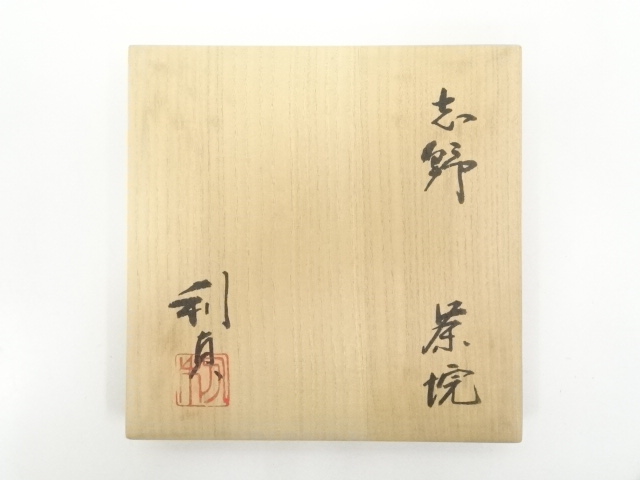 志野 茶垸
利貞